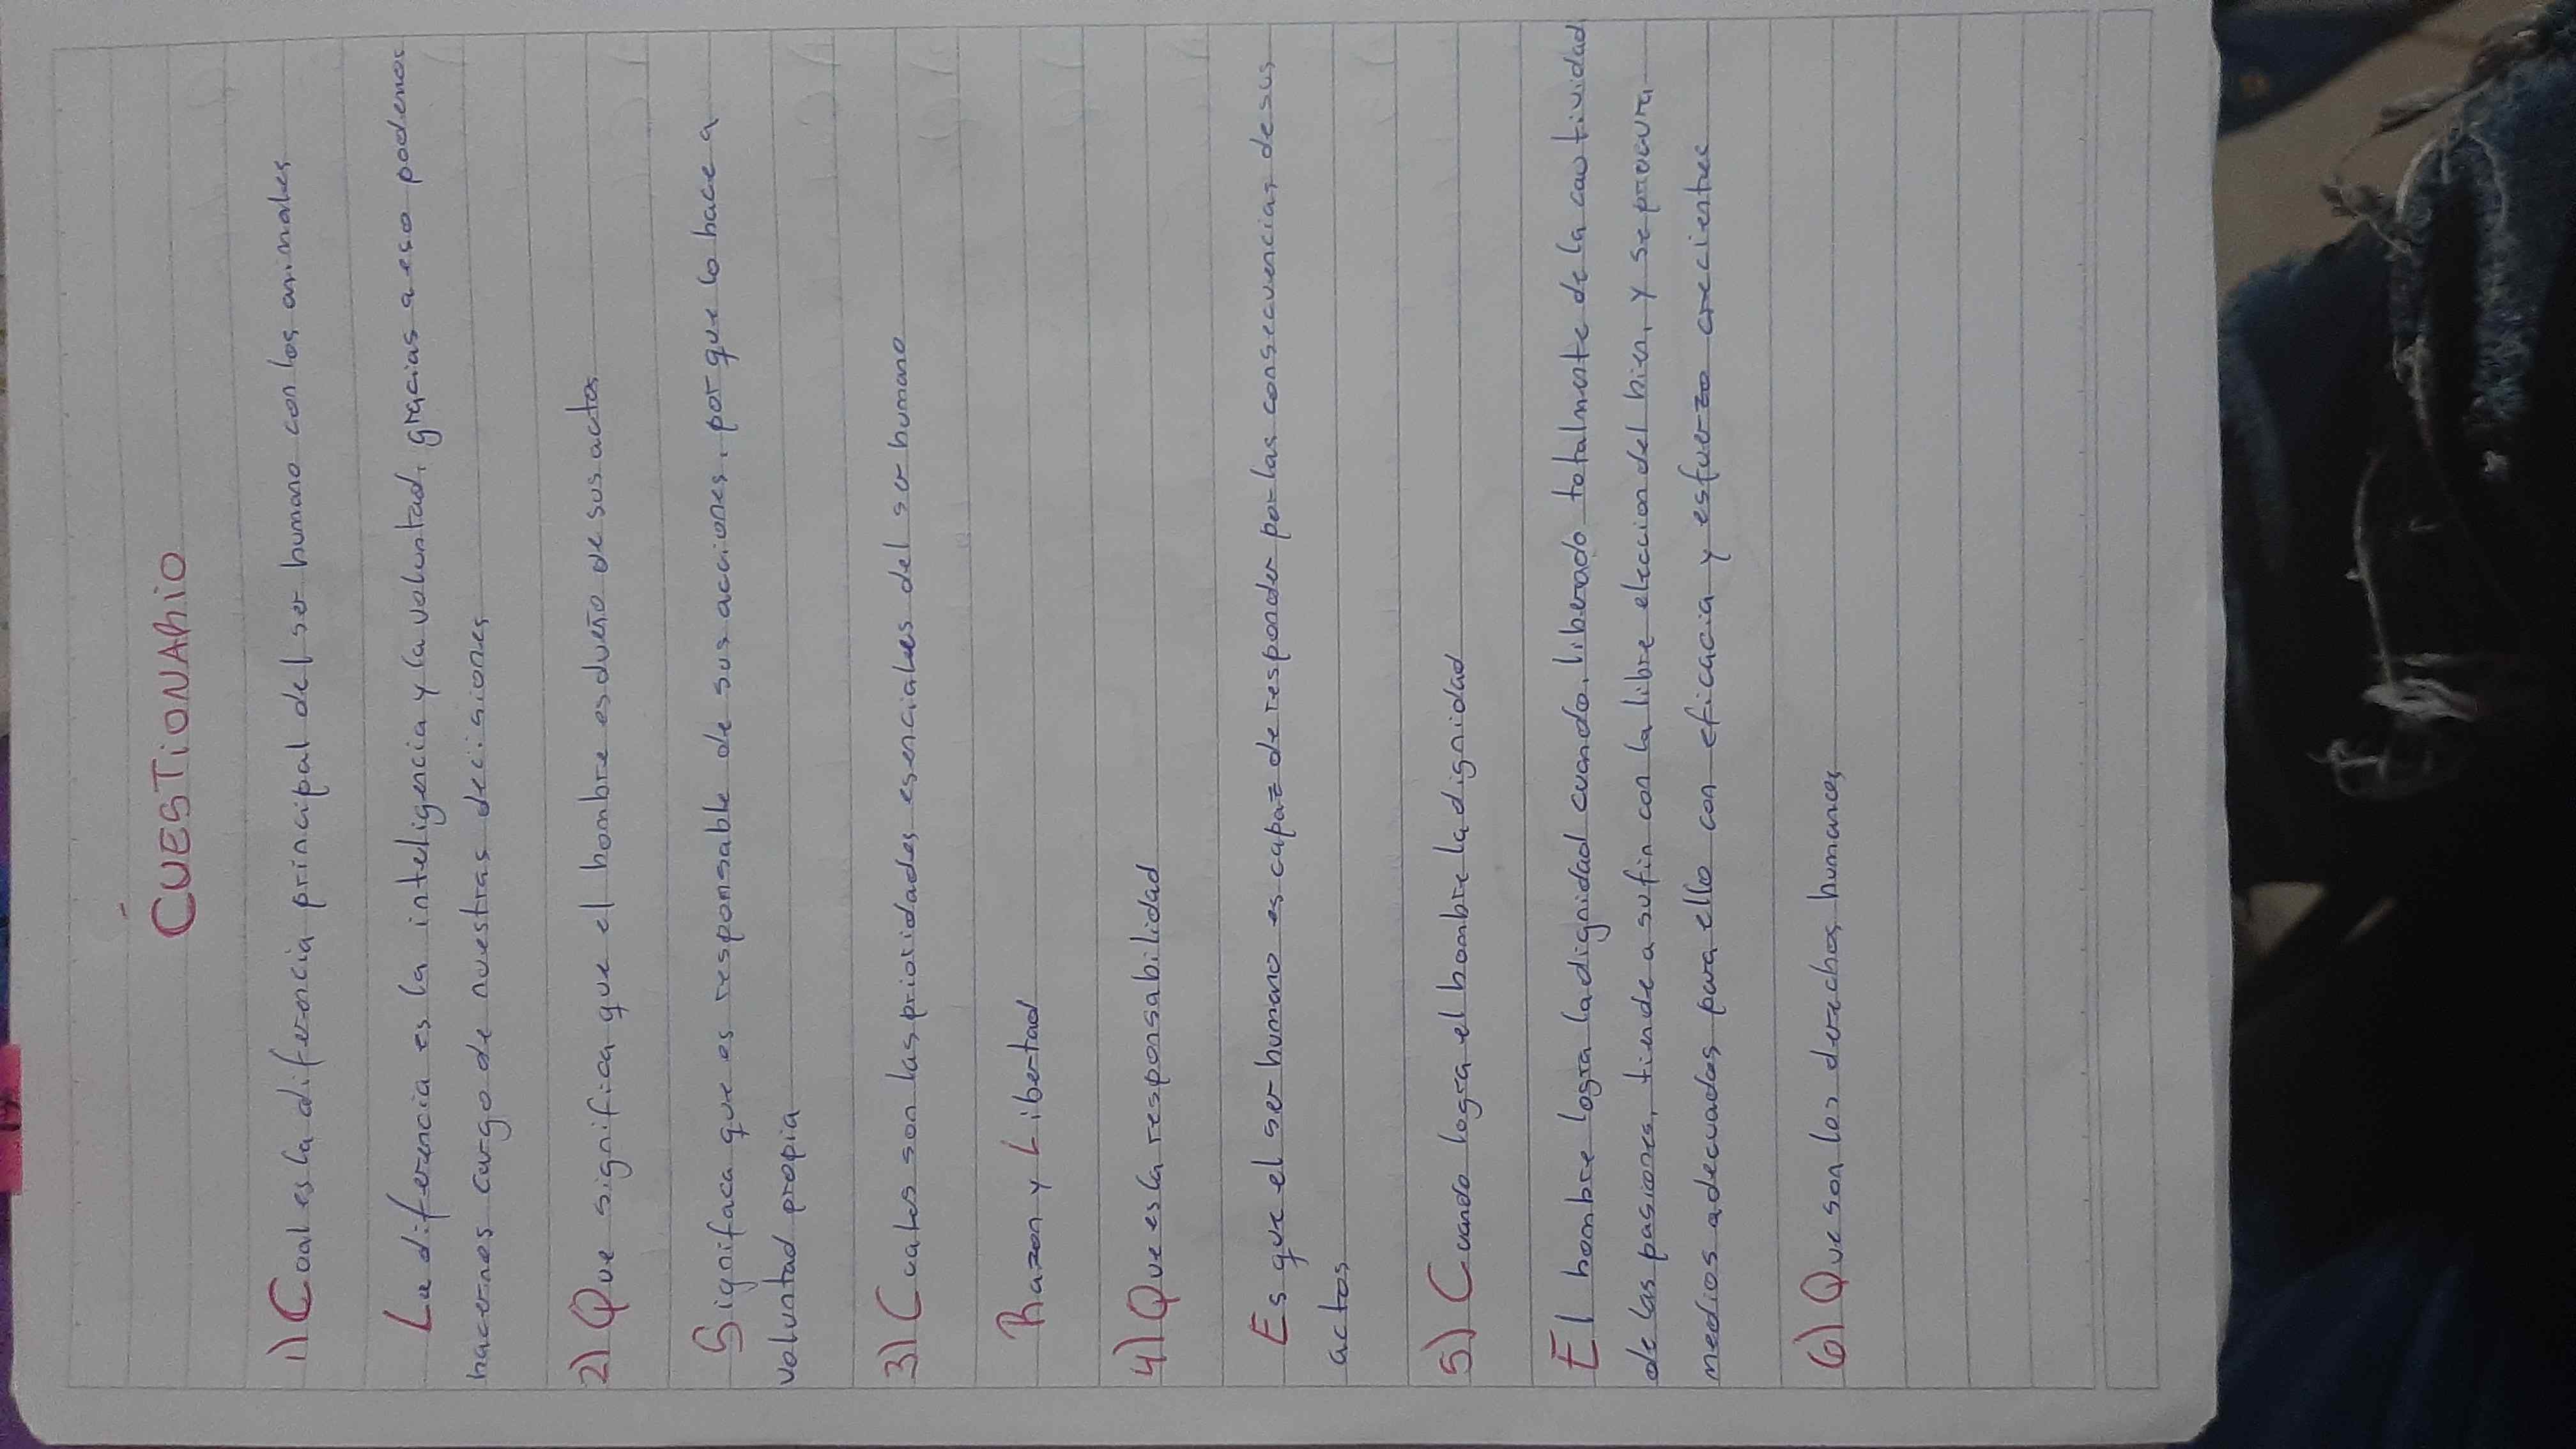 CUESTIONARIO
1) Cual es la diferencia principal del ser humano con los animales
La diferencia es la inteligencia y la voluntad, gracias a eso podemos
hacernos cargo de nuestras decisiones
2) Que significa que el hombre es dueño de sus actos
Signifaca que es responsable de sus acciones, por que lo hace a
voluntad propia
3) Cuales son las prioridades esenciales del ser humano
Razon y Libertad
4) Que es la responsabilidad
Es que el ser humano es capaz de responder por las consecuencias de sus
actos
5) Cuando logra el hombre la dignidad
El hombre logra la dignidad cuando, liberado totalmente de la cautividad
de las pasiones, tiende a su fin con la libre eleccion del bien, y se procura
medios adecuados para ello con eficacia y esfuerzo crecientes
6) Que son los derechos humanos